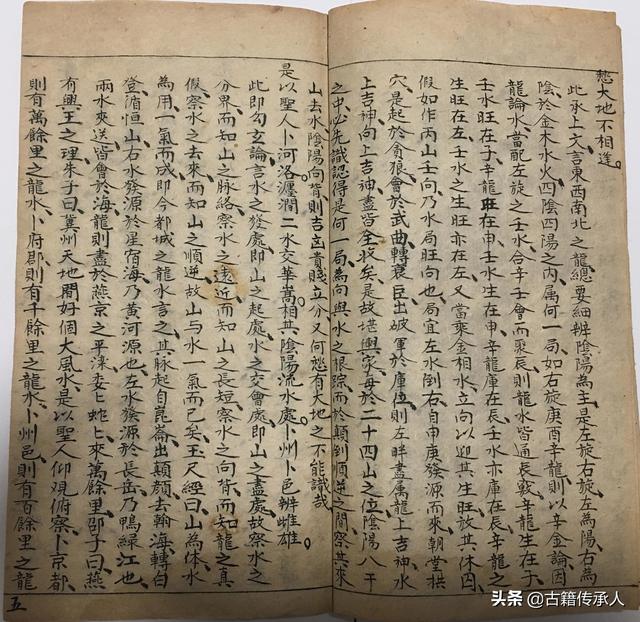 愁大地不相逢
此承上文言東西南北之龍總要細辨陰陽為主是左旋右旋左為陽右為
陰於金木水火四陰四陽之內属何一局如右旋庚酉辛龍則以辛金論因
龍論水當配左旋之壬水合辛壬會而聚辰則龍水皆通長數辛龍生在子
壬水旺在子辛龍旺在申壬水生在申辛龍庫在辰壬水亦庫在辰辛龍之
生旺在左壬水之生旺亦在左又當乘金相水立向以迎其生旺放其休囚
假如作丙山壬向乃水局旺向也局宜左水倒右自申庚發源而來朝堂拱
穴是起於貪狼會於武曲轉
臣出破軍於庫位則左畔盡属龍上吉神水
上吉神向上吉神盡皆全收矣是故堪輿家每於二十四山之位陰陽八干
之中必先識認得是何一局為向與水之根踪而於顛倒順逆之間察其來
山去水陰陽向背則吉凶貴賤立分又何愁有大地之不能識哉
是以聖人卜河洛瀍澗二水交華嵩相其陰陽流水處卜州卜邑辨雌雄
此即勾玄論言水之發處即山之起處水之交會處即山之盡處故察水之
分界而知山之脉絡察水之遠近而知山之長短察水之向背而知龍之真
假察水之去來而知山之順逆故山与水一氣而已矣玉尺經曰山為体水
為用一氣而成即今都城之龍水言之其脉起自崑崙出顛顔去翰海轉白
登循恒山右水發源於星宿海乃黄河源也左水發源於長岳乃鴨緑江也
兩水來送皆會於海龍則盡於燕京之平濼委七蛇七來萬餘里邵子曰燕
有興王之理朱子曰冀州天地間好個大風水是以聖人仰观俯察卜京都
則有萬餘里之龍水卜府郡則有千餘里之龍水卜州邑則有百餘里之龍
五
头条 @古籍传承人